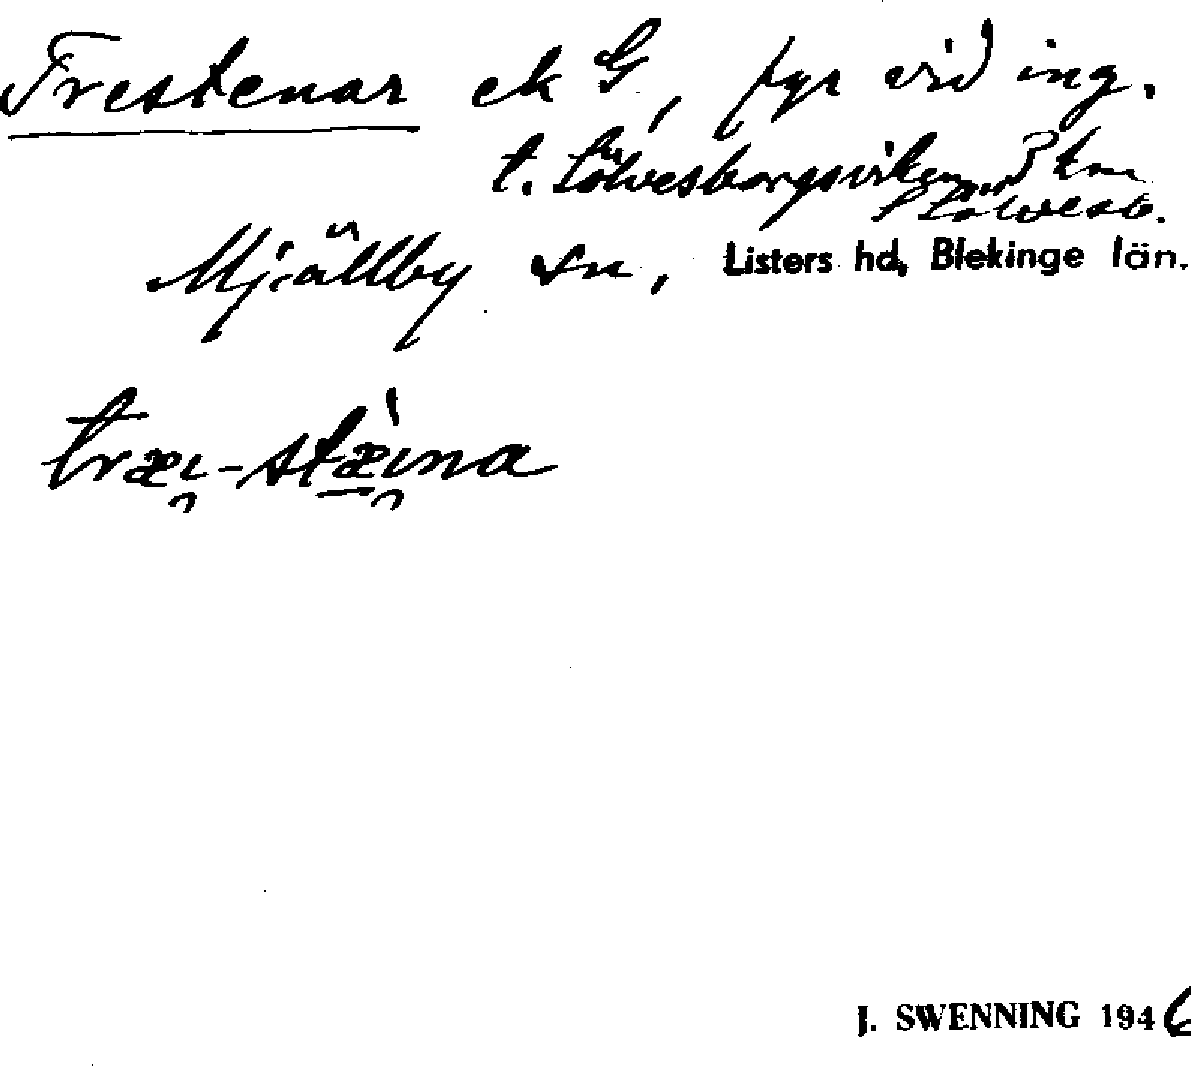 Trestenar ek G, fyr vid ing.
t. Sölvesborgsviken 3 km
S Sölvesb.
Mjällby sn, Listers hd, Blekinge län.
træı̯-stæ̀ı̯na
J. SWENNING 1946